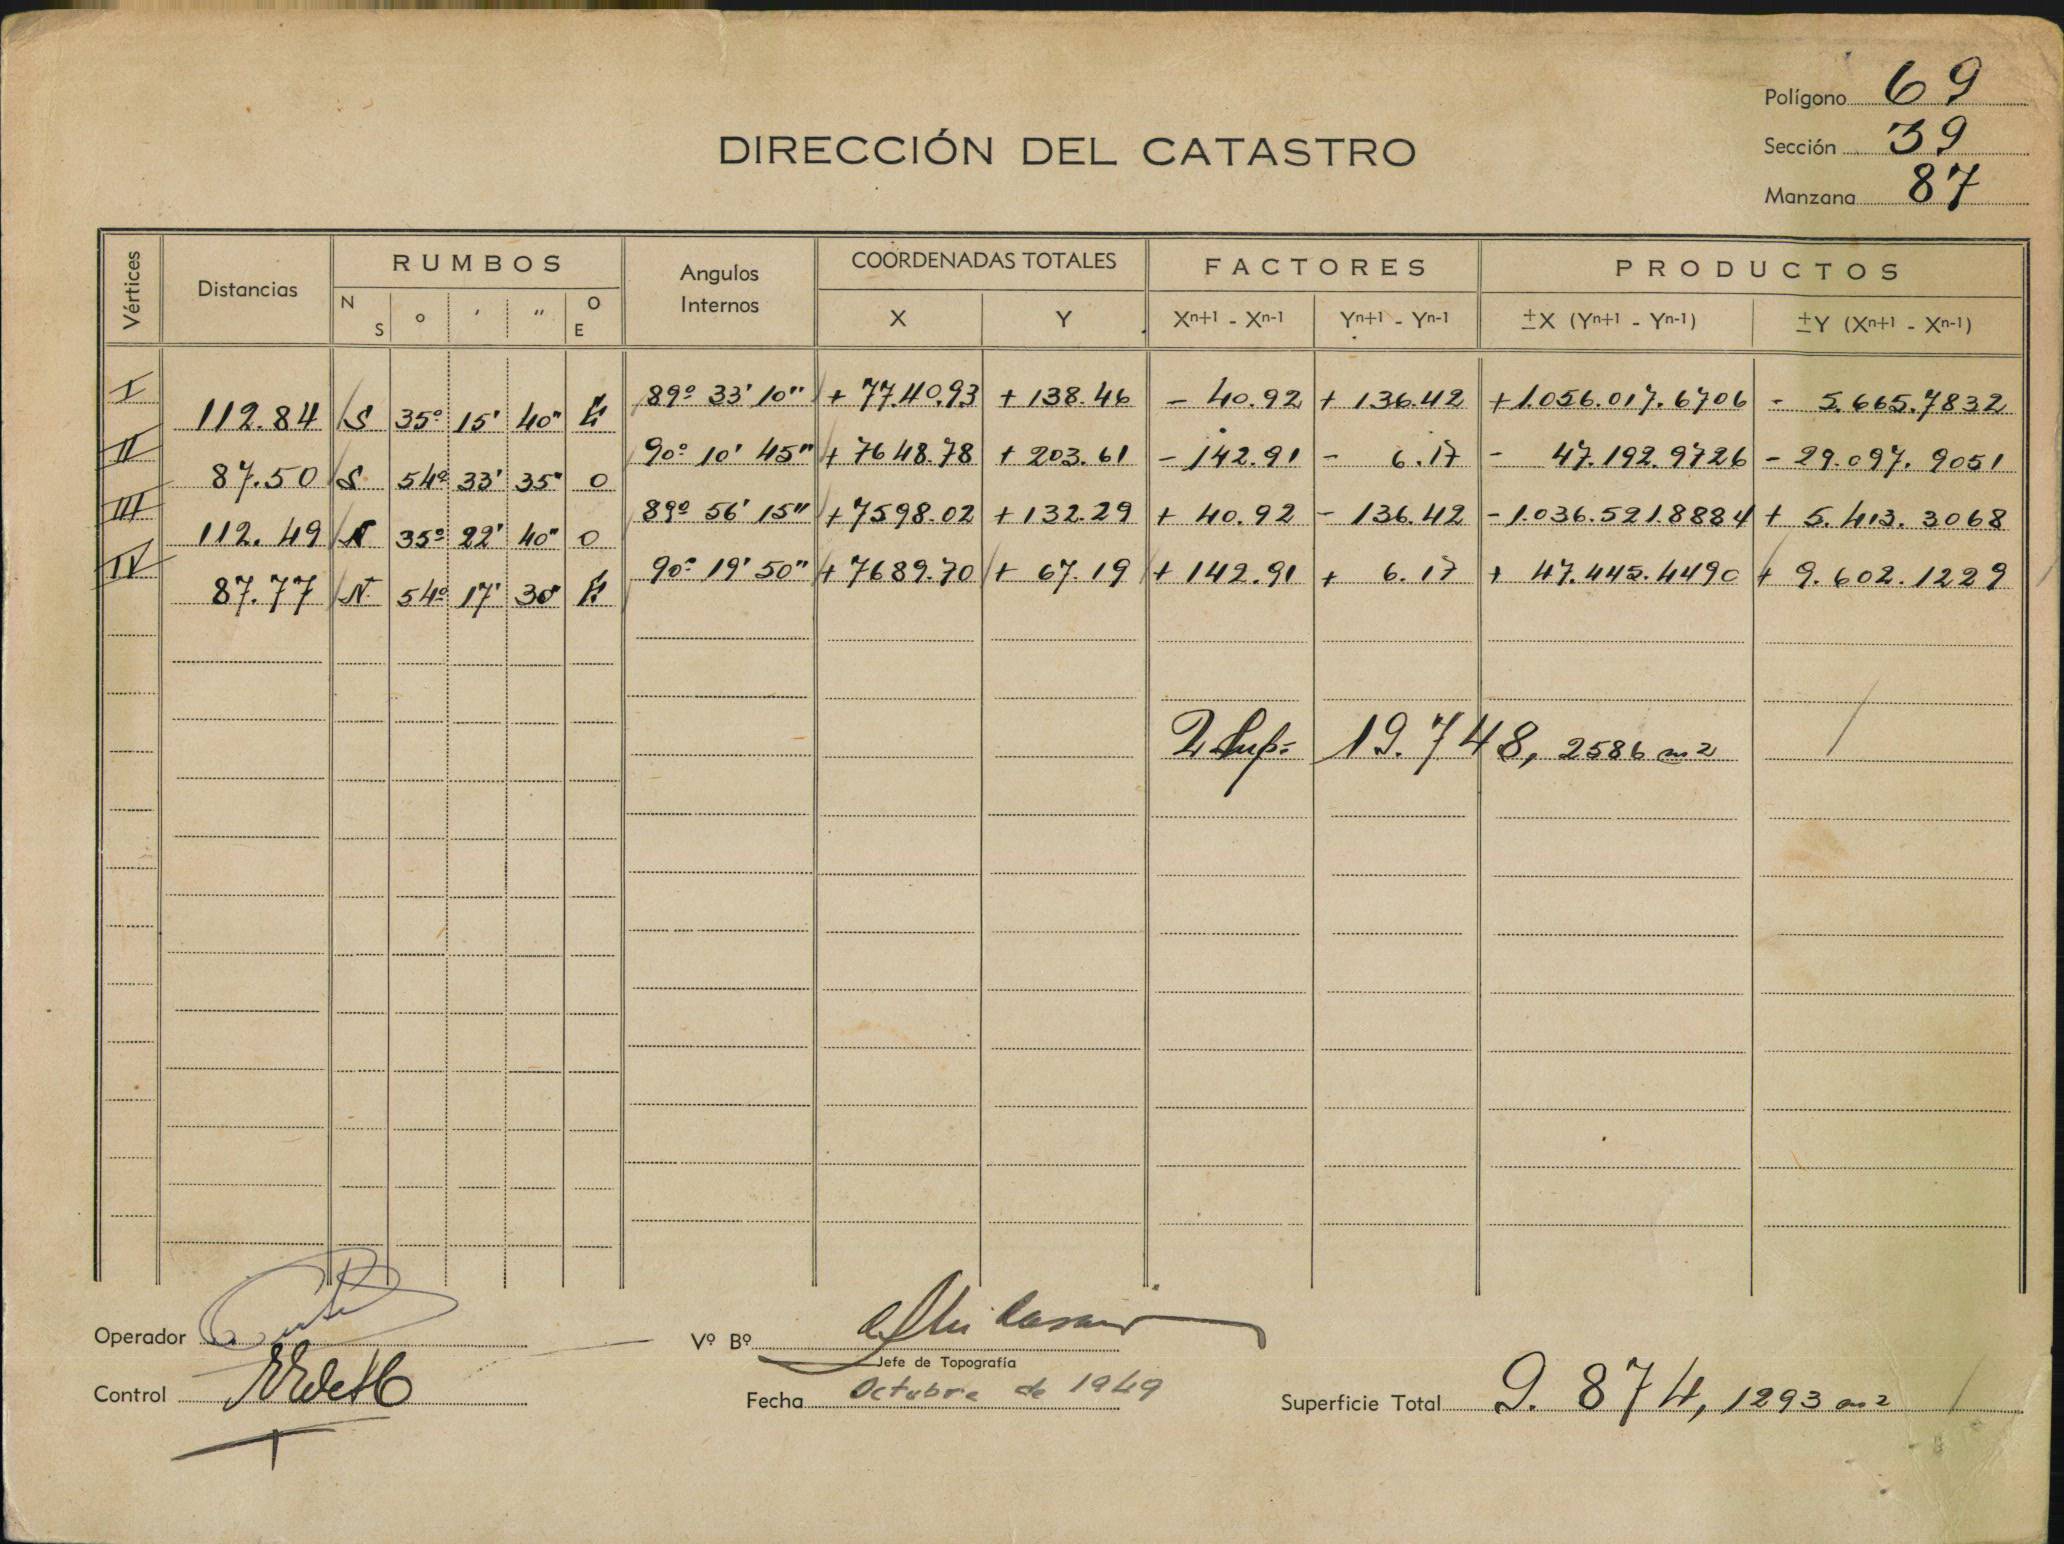 Polígono 69
DIRECCIÓN DEL CATASTRO
Sección 39
Manzana 87
Vértices Distancias RUMBOS Angulos Internos COORDENADAS TOTALES FACTORES PRODUCTOS
N S o ′ ″ O E X Y Xn+1 - Xn-1 Yn+1 - Yn-1 ±X (Yn+1 - Yn-1) ±Y (Xn+1 - Xn-1)
I 89º 33' 10" + 7740.93 + 138.46 - 40.92 + 136.42 + 1.056.017.6706 - 5.665.7832
112.84 S 35º 15' 40" E
II 90º 10' 45" + 7648.78 + 203.61 - 142.91 - 6.17 - 47.192.9726 - 29.097.9051
87.50 S 54º 33' 35" O
III 89º 56' 15" + 7598.02 + 132.29 + 40.92 - 136.42 - 1.036.521.8884 + 5.413.3068
112.49 N 35º 22' 40" O
IV 90º 19' 50" + 7689.70 + 67.19 + 142.91 + 6.17 + 47.445.4490 + 9.602.1229
87.77 N 54º 17' 30" E
2 Sup= 19.748,2586 m2
Operador
Vº Bº
Jefe de Topografía
Control
Fecha Octubre de 1949
Superficie Total 9.874,1293 m2